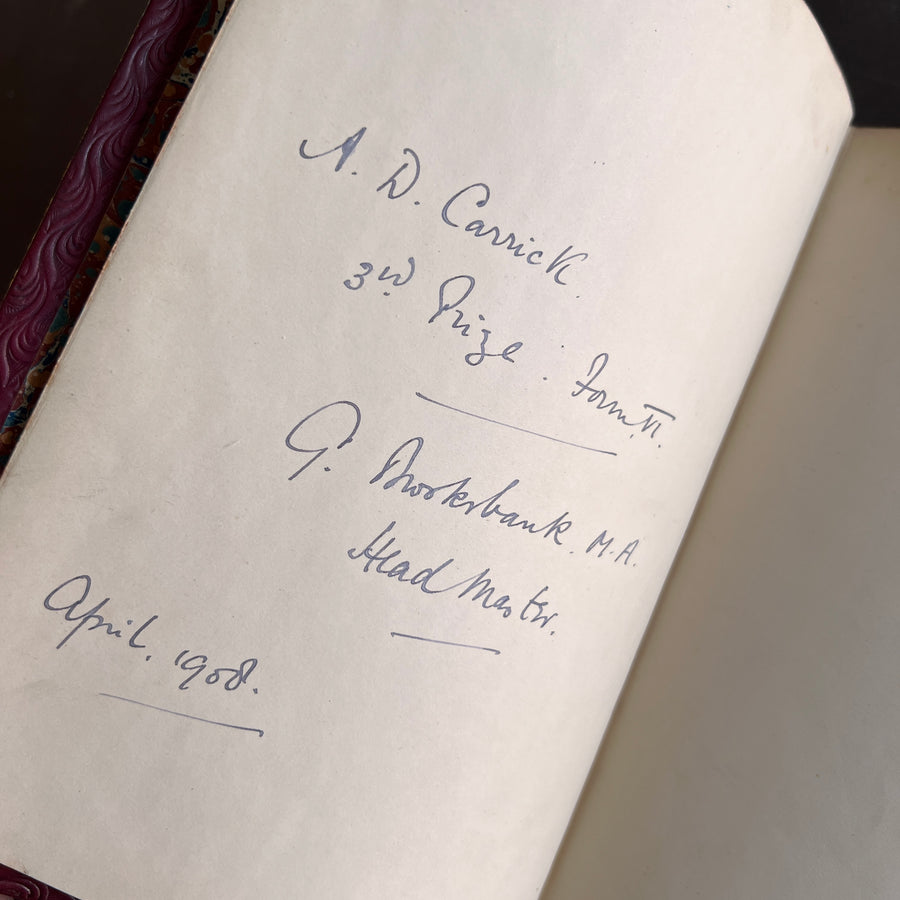 A. D. Carrick.
3rd Prize. Form VI.
G. Brooksbank. M.A.
Head Master.
April. 1908.